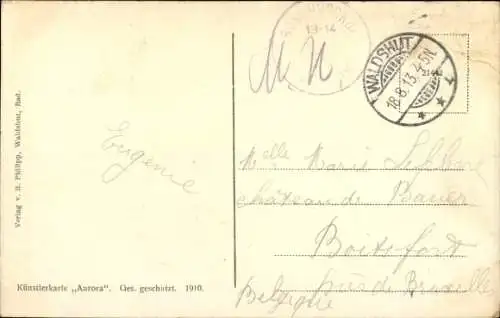 13-14
WALDSHUT
18.8.13. 4-5N.
Eugenie
Melle Marie
château de Bauer
Boitsfort
près de Bruxelles
Belgique
Verlag v. H. Philipp, Waldshut, Bad.
Künstlerkarte „Aurora". Ges. geschützt. 1910.